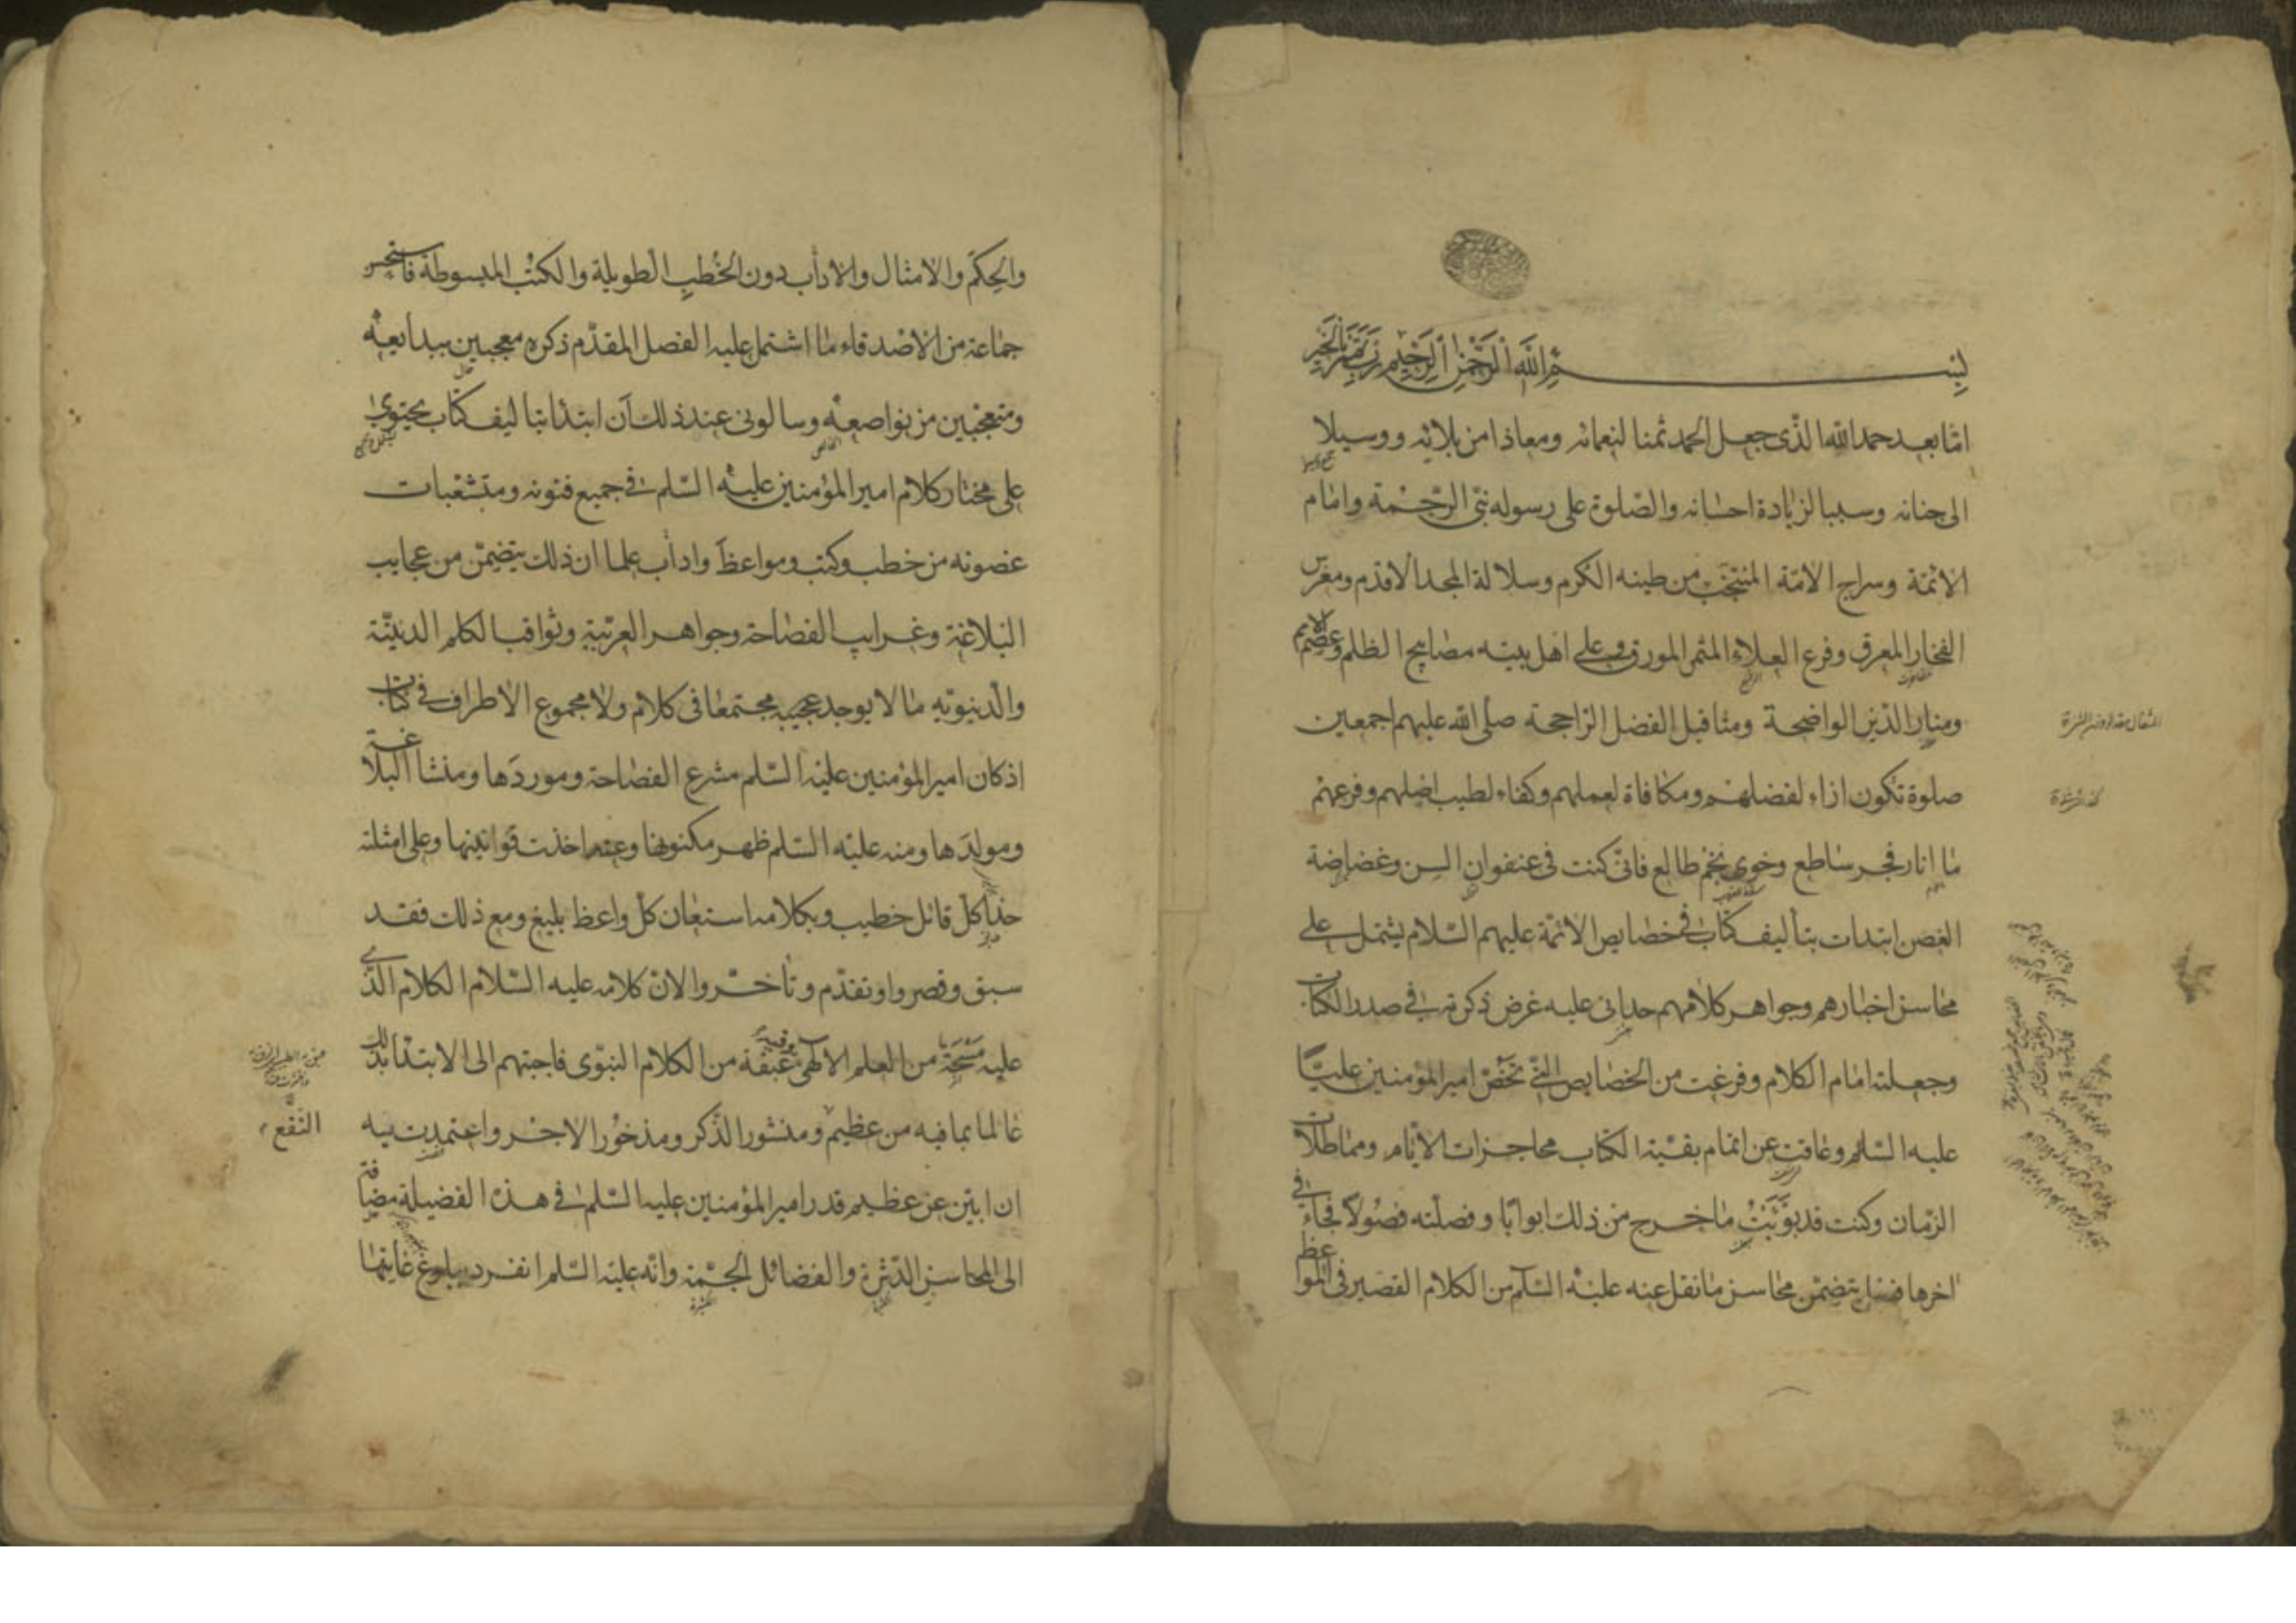 بسم الله الرحمن الرحيم رب تمم بالخير
اما بعد حمد الله الذى جعل الحمد ثمنا لنعمائه ومعاذا من بلائه ووسيلا
الى جنانه وسببا لزيادة احسانه والصلوة على رسوله نبى الرحمة وامام
الائمة وسراج الامة المنتجب من طينه الكرم وسلالة المجد الاقدم ومغرس
الفخار المعرق وفرع العلاء المثمر المورق وعلى اهل بيته مصابيح الظلم وعصم الامم
ومنار الدين الواضحة ومثاقيل الفضل الراجحة صلى الله عليهم اجمعين
صلوة تكون ازاء لفضلهم ومكافاة لعملهم وكفاء لطيب اصلهم وفرعهم
ما انار فجر ساطع وخوى نجم طالع فانى كنت فى عنفوان السن وغضاضة
الغصن ابتدات بتأليف كتاب فى خصايص الائمة عليهم السلام يشتمل على
محاسن اخبارهم وجواهر كلامهم حدانى عليه غرض ذكرته فى صدر الكتاب
وجعلته امام الكلام وفرغت من الخصايص التى تخص امير المؤمنين عليا
عليه السلم وعاقت عن اتمام بقية الكتاب محاجزات الايام ومماطلات
الزمان وكنت قد بوبت ما خرج من ذلك ابوابا وفصلته فصولا فجاء فى
اخرها فصل يتضمن محاسن ما نقل عنه عليه السلم من الكلام القصير فى المواعظ
المثقال مقدار وزنه
والحكم والامثال والاداب دون الخطب الطويلة والكتب المبسوطة فاستحسن
جماعة من الاصدقاء ما اشتمل عليه الفصل المقدم ذكره معجبين ببدايعه
ومتعجبين من نواصعه وسالونى عند ذلك ان ابتدأ بتاليف كتاب يحتوى
على مختار كلام امير المؤمنين عليه السلم فى جميع فنونه ومتشعبات
غصونه من خطب وكتب ومواعظ واداب علما ان ذلك يتضمن من عجايب
البلاغة وغرايب الفصاحة وجواهر العربية وثواقب الكلم الدينية
والدنيوية ما لا يوجد مجتمعا فى كلام ولا مجموع الاطراف فى كتاب
اذ كان امير المؤمنين عليه السلم مشرع الفصاحة وموردها ومنشأ البلاغة
ومولدها ومنه عليه السلم ظهر مكنونها وعنه اخذت قوانينها وعلى امثلته
حذا كل قائل خطيب وبكلامه استعان كل واعظ بليغ ومع ذلك فقد
سبق وقصروا وتقدم وتأخروا لان كلامه عليه السلام الكلام الذى
عليه مسحة من العلم الالهى وفيه عبقة من الكلام النبوى فاجبتهم الى الابتداء بذلك
عالما بما فيه من عظيم ومنشور الذكر ومذخور الاجر واعتمدت به
النفع
ان ابين عن عظيم قدر امير المؤمنين عليه السلم فى هذه الفضيلة مضافة
الى المحاسن الدثرة والفضائل الجمة وانه عليه السلم انفرد ببلوغ غايتها